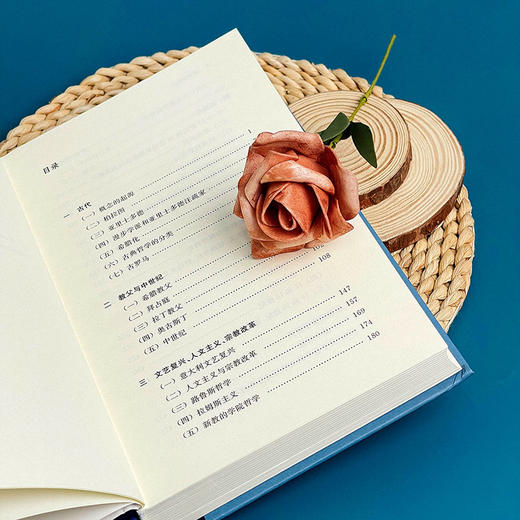 目录
一 古代
（一）概念的起源 1
（二）柏拉图
（三）亚里士多德
（四）漫步学派和亚里士多德注疏家
（五）希腊化
（六）古典哲学的分类
（七）古罗马
二 教父与中世纪
（一）希腊教父
（二）拜占庭
（三）拉丁教父 102
（四）奥古斯丁 108
（五）中世纪
三 文艺复兴、人文主义、宗教改革 147
（一）意大利文艺复兴 157
（二）人文主义与宗教改革 169
（三）路鲁斯哲学 174
（四）拉姆斯主义 180
（五）新教的学院哲学